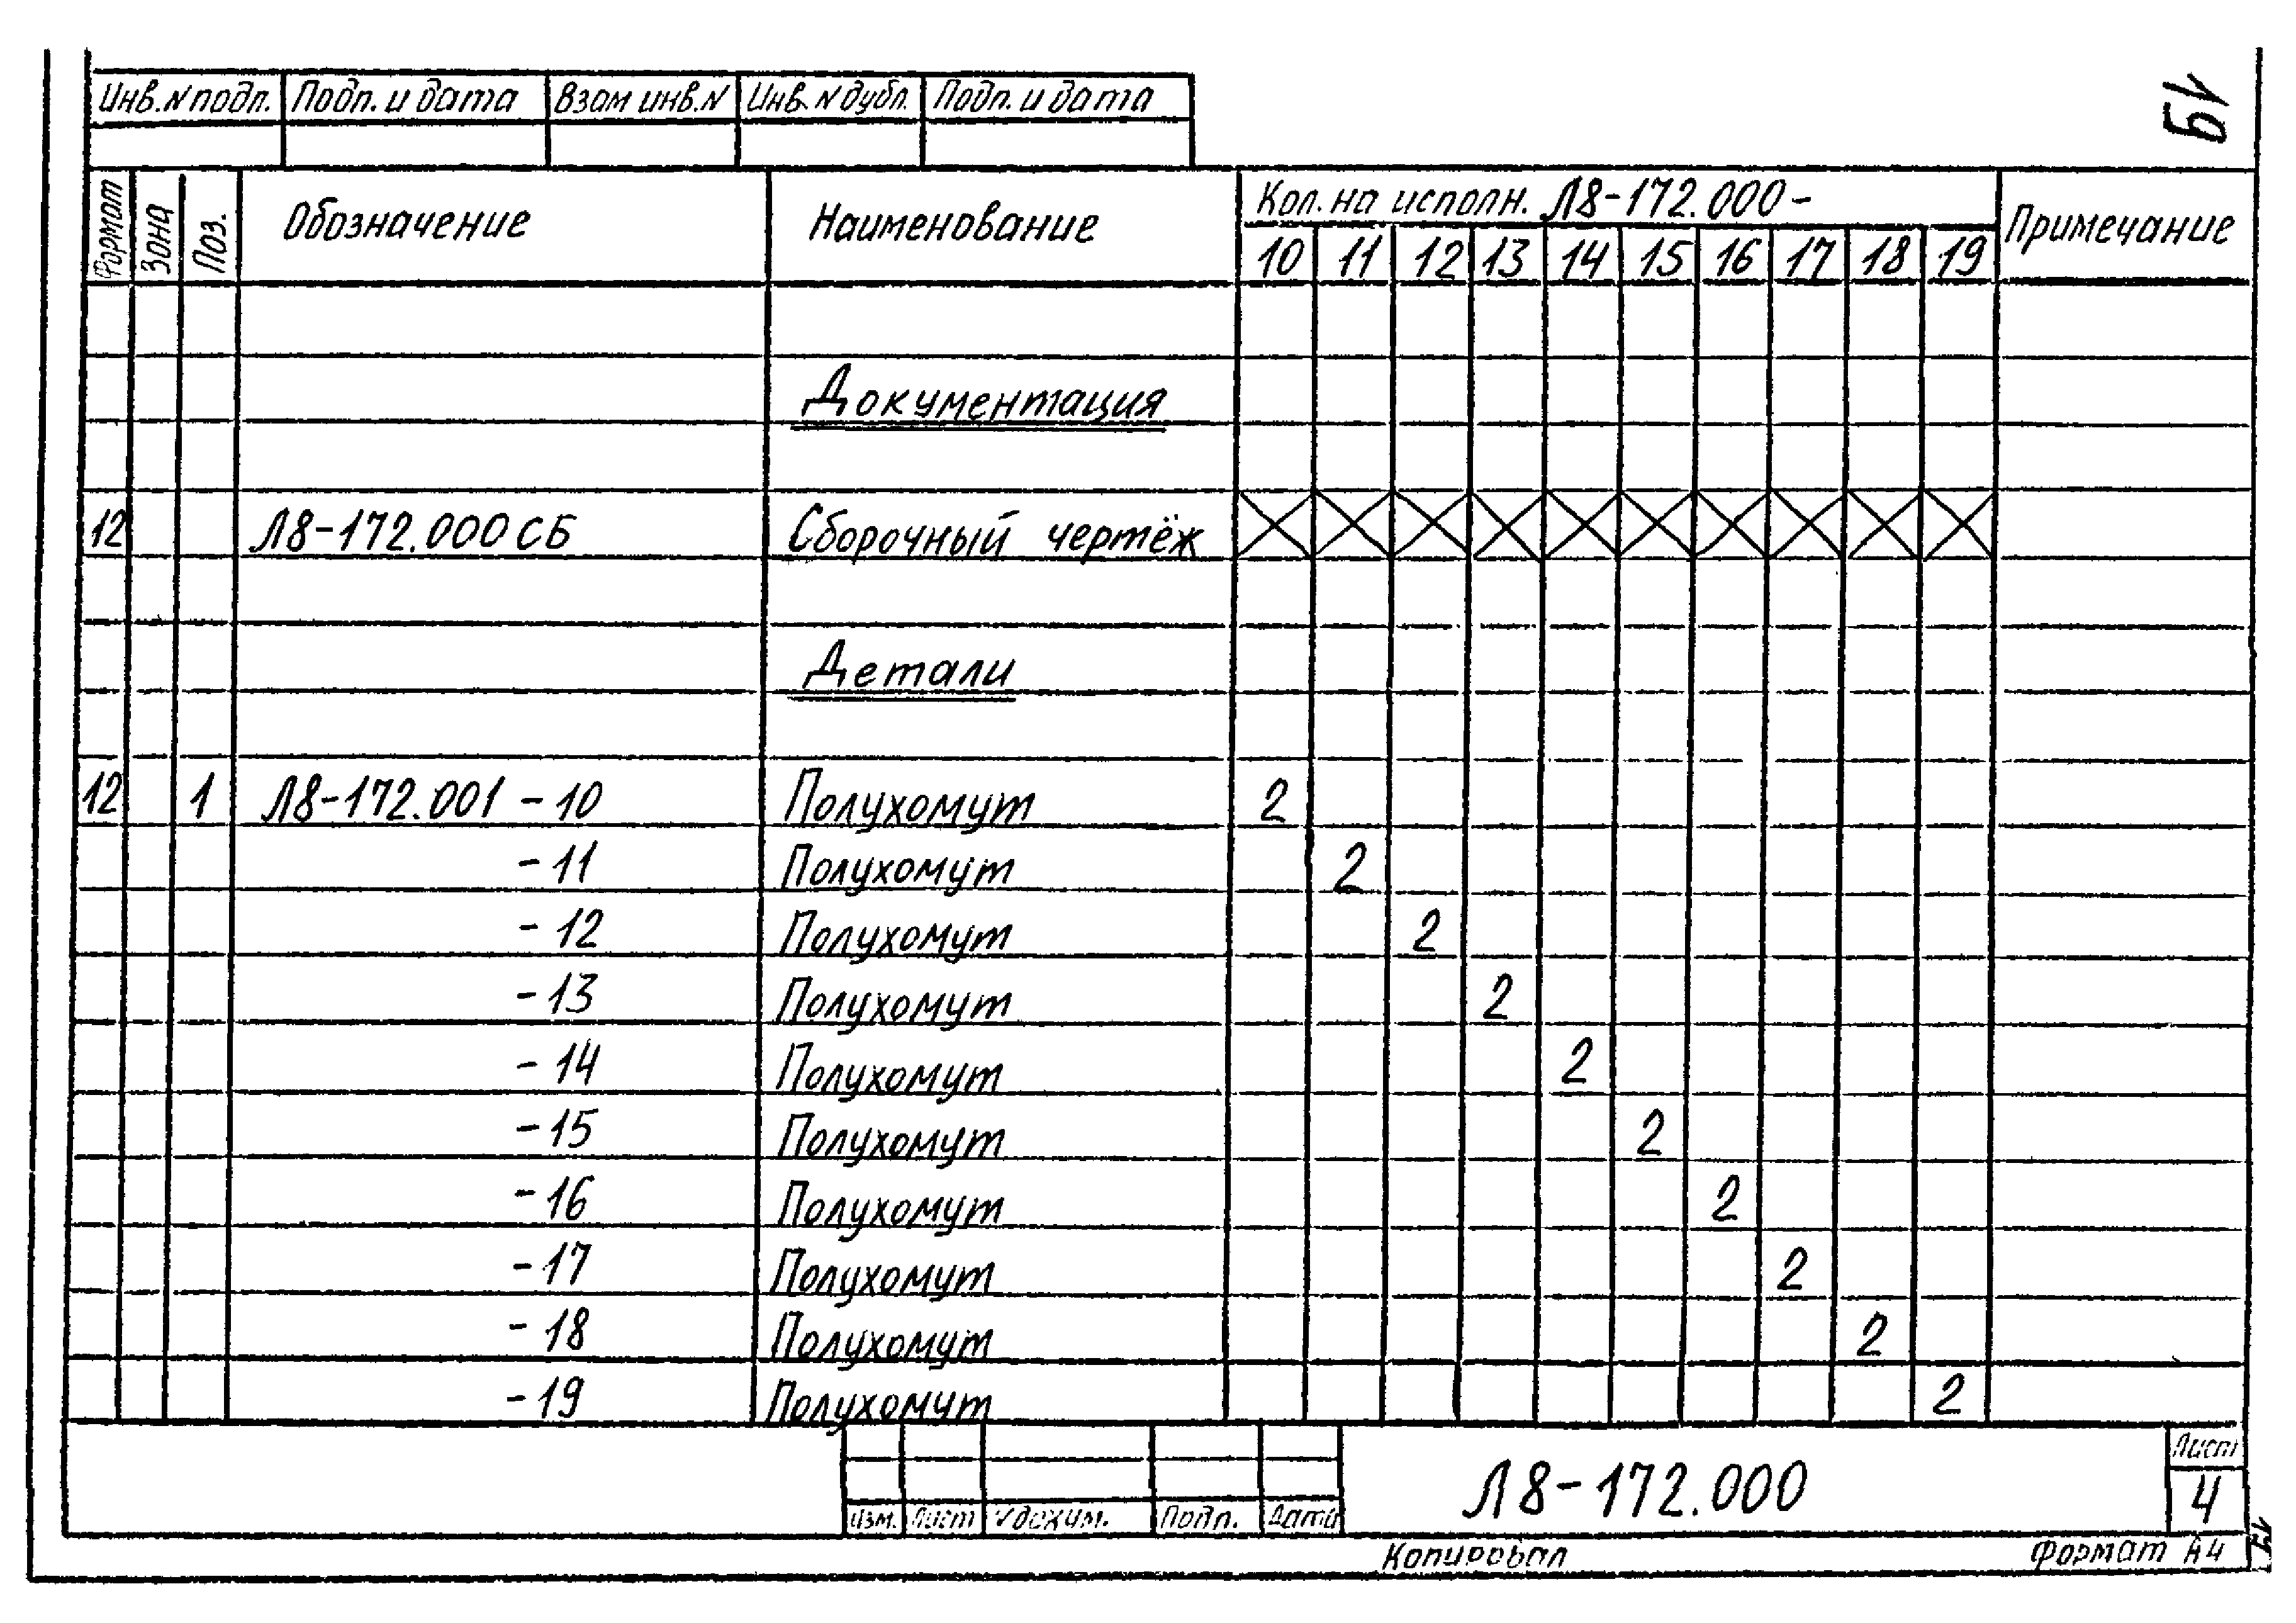 19
Инв.N подп. Подп. и дата Взам инв.N Инв.N дубл. Подп. и дата
Формат Зона Поз. Обозначение Наименование Кол. на исполн. Л8-172.000- Примечание
10 11 12 13 14 15 16 17 18 19
Документация
12 Л8-172.000 СБ Сборочный чертёж
Детали
12 1 Л8-172.001 -10 Полухомут 2
-11 Полухомут 2
-12 Полухомут 2
-13 Полухомут 2
-14 Полухомут 2
-15 Полухомут 2
-16 Полухомут 2
-17 Полухомут 2
-18 Полухомут 2
-19 Полухомут 2
Изм. Лист Подп. Дата Л8-172.000 Лист 4
Копировал Формат А4